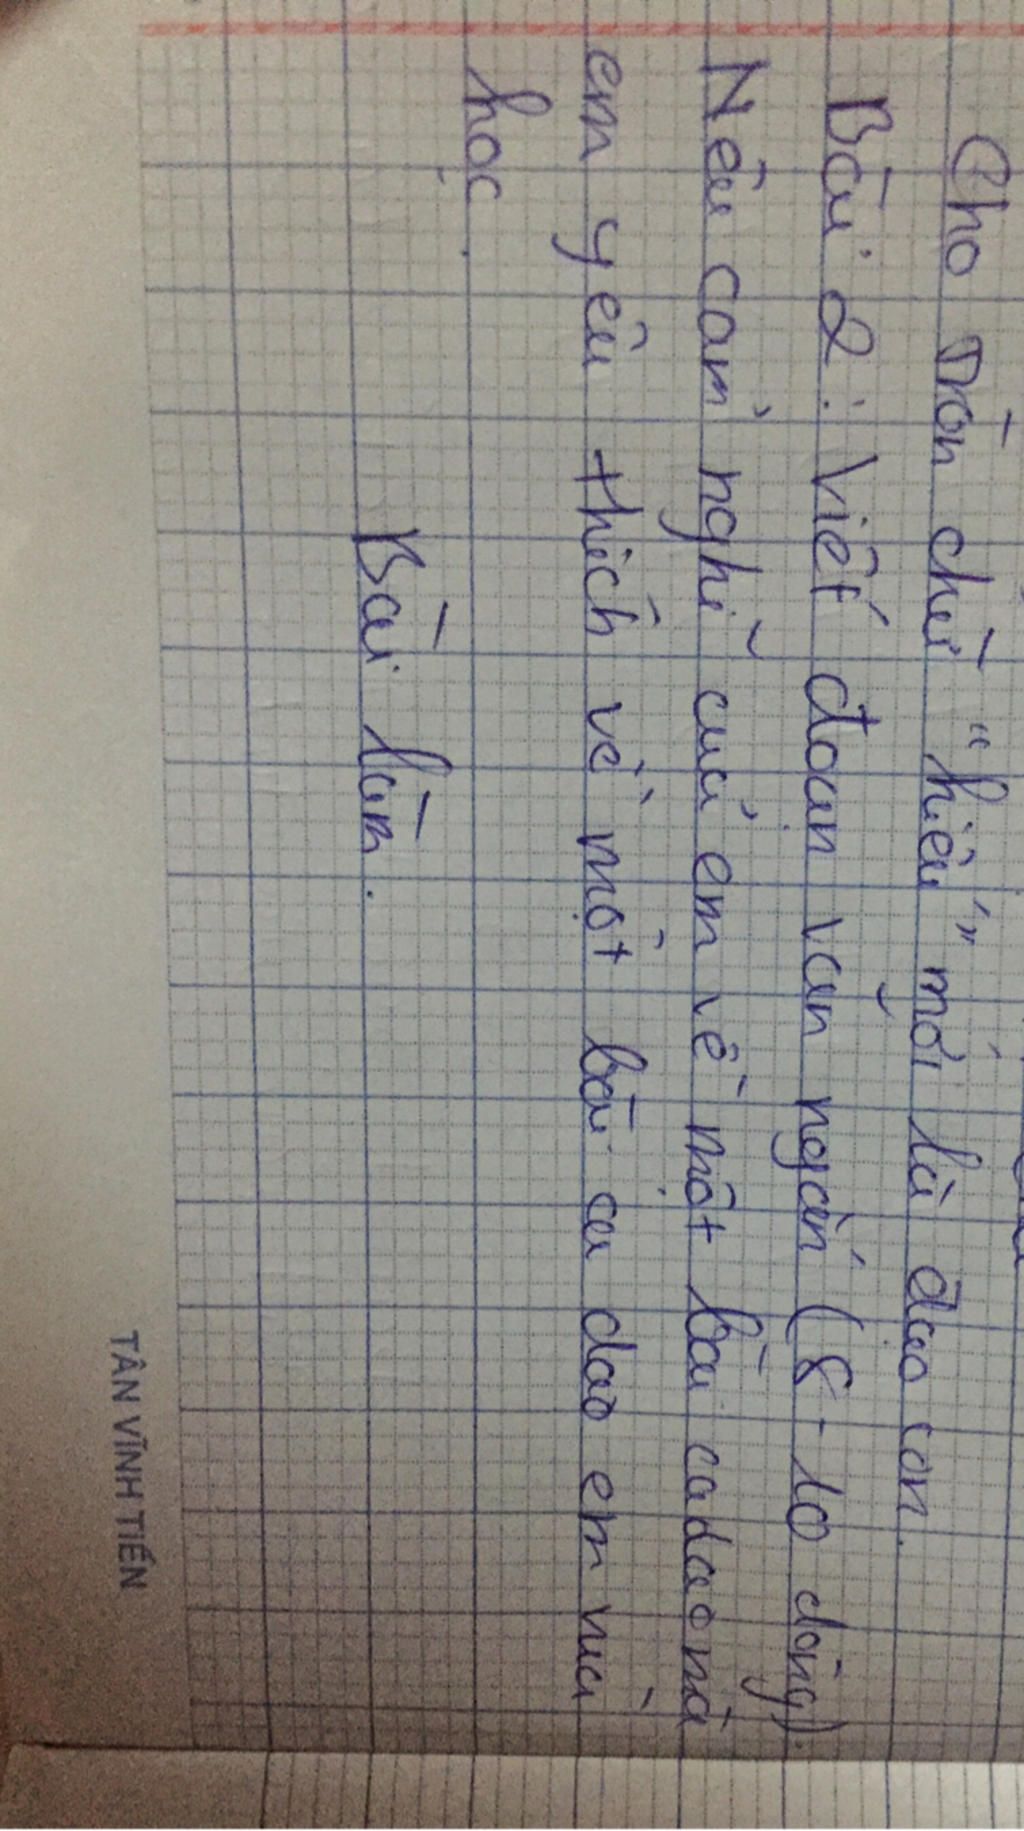 Cho tròn chữ "hiếu" mới là đạo con.
Bài 2: Viết đoạn văn ngắn (8-10 dòng).
Nêu cảm nghĩ của em về một bài ca dao mà
em yêu thích về một bài ca dao em vừa
học.
Bài làm.
TÂN VĨNH TIẾN